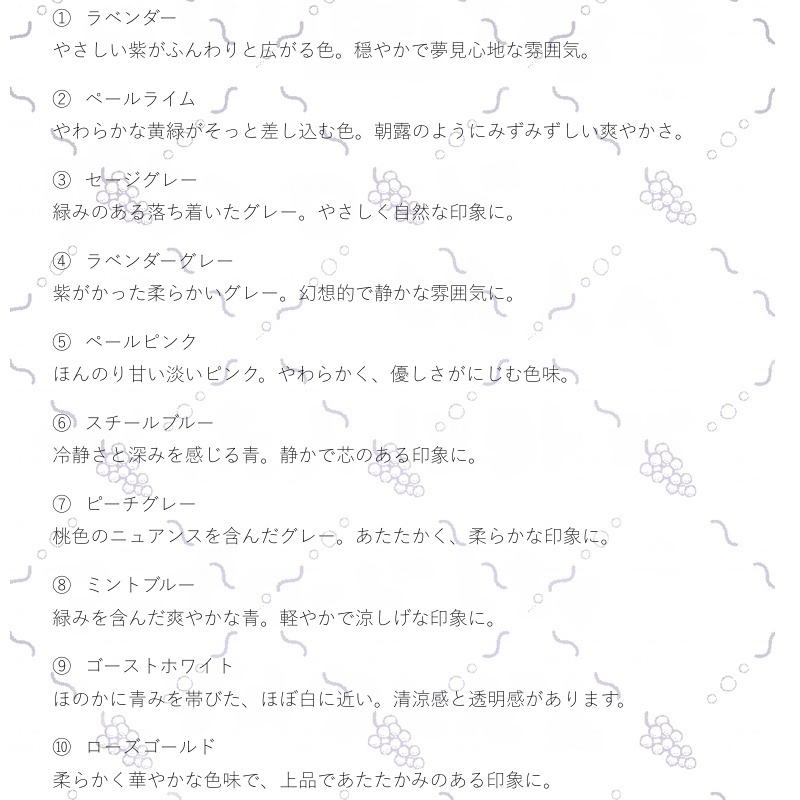 ① ラベンダー
やさしい紫がふんわりと広がる色。穏やかで夢見心地な雰囲気。
② ペールライム
やわらかな黄緑がそっと差し込む色。朝露のようにみずみずしい爽やかさ。
③ セージグレー
緑みのある落ち着いたグレー。やさしく自然な印象に。
④ ラベンダーグレー
紫がかった柔らかいグレー。幻想的で静かな雰囲気に。
⑤ ペールピンク
ほんのり甘い淡いピンク。やわらかく、優しさがにじむ色味。
⑥ スチールブルー
冷静さと深みを感じる青。静かで芯のある印象に。
⑦ ピーチグレー
桃色のニュアンスを含んだグレー。あたたかく、柔らかな印象に。
⑧ ミントブルー
緑みを含んだ爽やかな青。軽やかで涼しげな印象に。
⑨ ゴーストホワイト
ほのかに青みを帯びた、ほぼ白に近い。清涼感と透明感があります。
⑩ ローズゴールド
柔らかく華やかな色味で、上品であたたかみのある印象に。